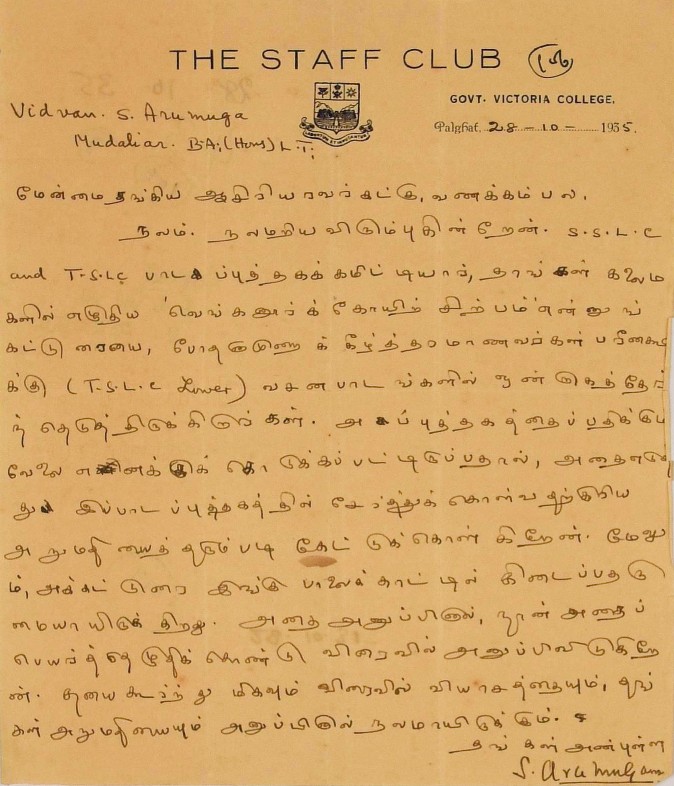 THE STAFF CLUB
GOVT. VICTORIA COLLEGE.
Palghat 28-10- 1935.
Vidvan. S. Arumuga
Mudaliar. B.A;(Hons) L.T;
மேன்மை தங்கிய ஆசிரியரவர்கட்கு, வணக்கம் பல.
நலம். நலமறிய விரும்புகின்றேன். S.S.L.C
and T.S.L.C பாடப்புத்தகக் கமிட்டியார், தாங்கள் கலைம
களில் எழுதிய 'வெங்கனூர்க் கோயிற் சிற்பம்' என்னுங்
கட்டுரையை, போதனாமுறைக் கீழ்த்தரமாணவர்கள் பரீக்ஷை
க்கு (T.S.L.C Lower) வசன பாடங்களில் ஒன்றாகத்தேர்
ந்தெடுத்திருக்கிறார்கள். அப்புத்தகத்தைப் பதிக்கும்
வேலை எனக்குக் கொடுக்கப்பட்டிருப்பதால், அதை எடுத்
து இப்பாடப்புத்தகத்தில் சேர்த்துக் கொள்வதற்குரிய
அநுமதியைத் தரும்படி கேட்டுக்கொள்கிறேன். மேலு
ம், அக்கட்டுரை இங்கு பாலைக்காட்டில் கிடைப்பதரு
மையாயிருக்கிறது. அதை அனுப்பினால், நான் அதைப்
பெயர்த்தெழுதிக் கொண்டு விரைவில் அனுப்பிவிடுகிறே
ன். தயை கூர்ந்து மிகவும் விரைவில் வியாசத்தையும், தங்
கள் அநுமதியையும் அனுப்பினால் நலமாயிருக்கும்.
தங்கள் அன்புள்ள
S. Arumugam